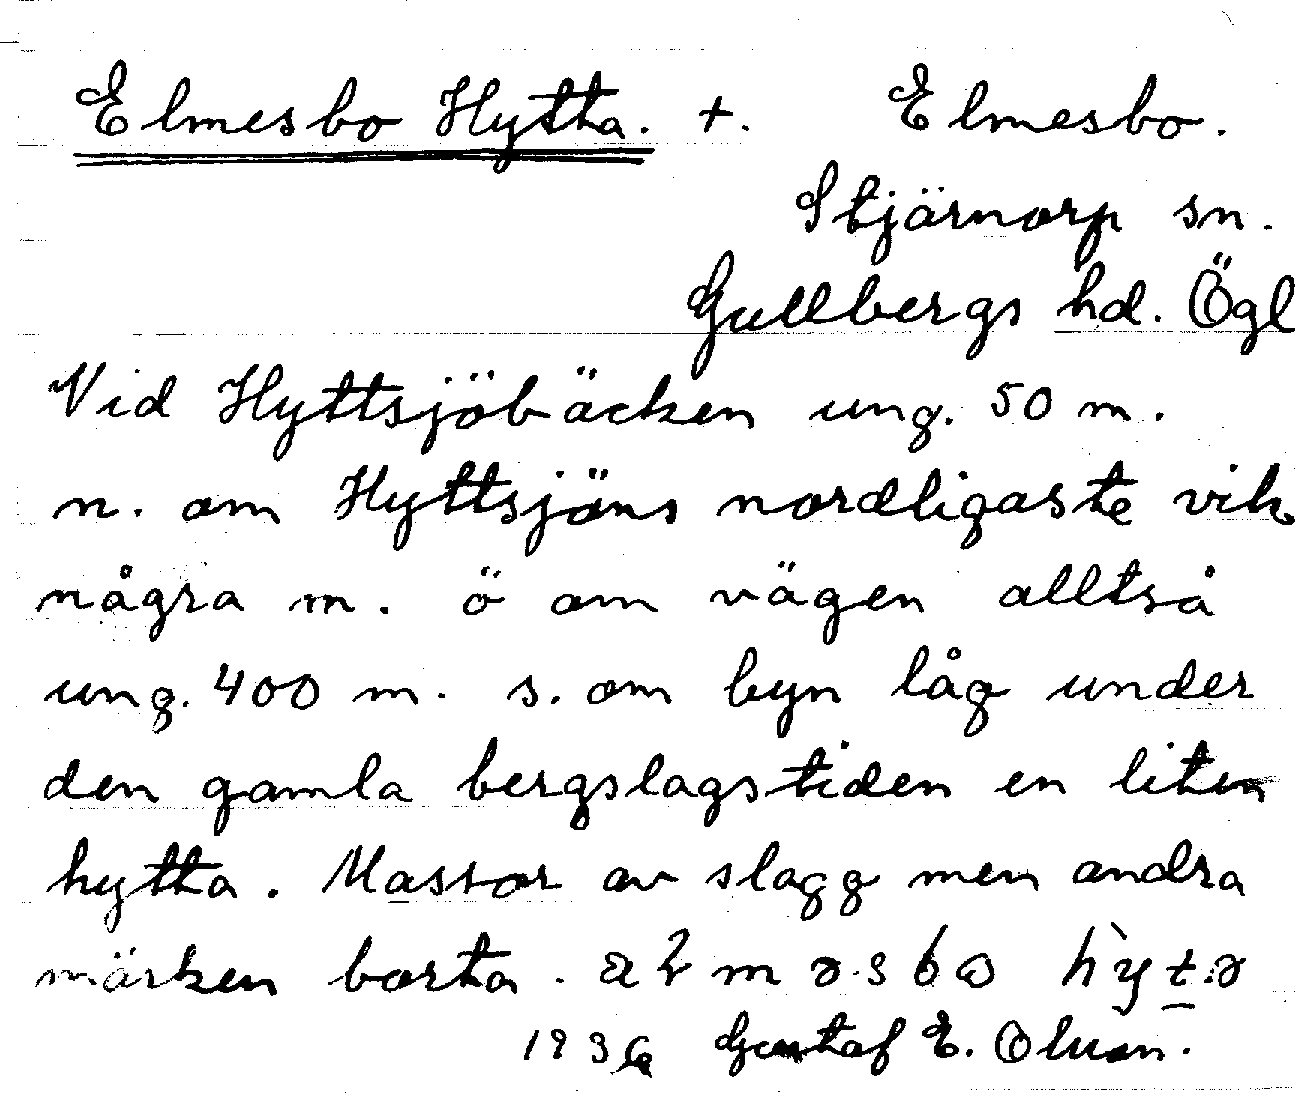 Elmesbo Hytta. +. Elmesbo.
Stjärnorp sn.
Gullbergs hd. Ögl
Vid Hyttsjöbäcken ung. 50 m.
n. om Hyttsjöns nordligaste vik
några m. ö om vägen alltså
ung. 400 m. s. om byn låg under
den gamla bergslagstiden en liten
hytta. Massor av slagg men andra
märken borta.
Gustaf E. Olsson.